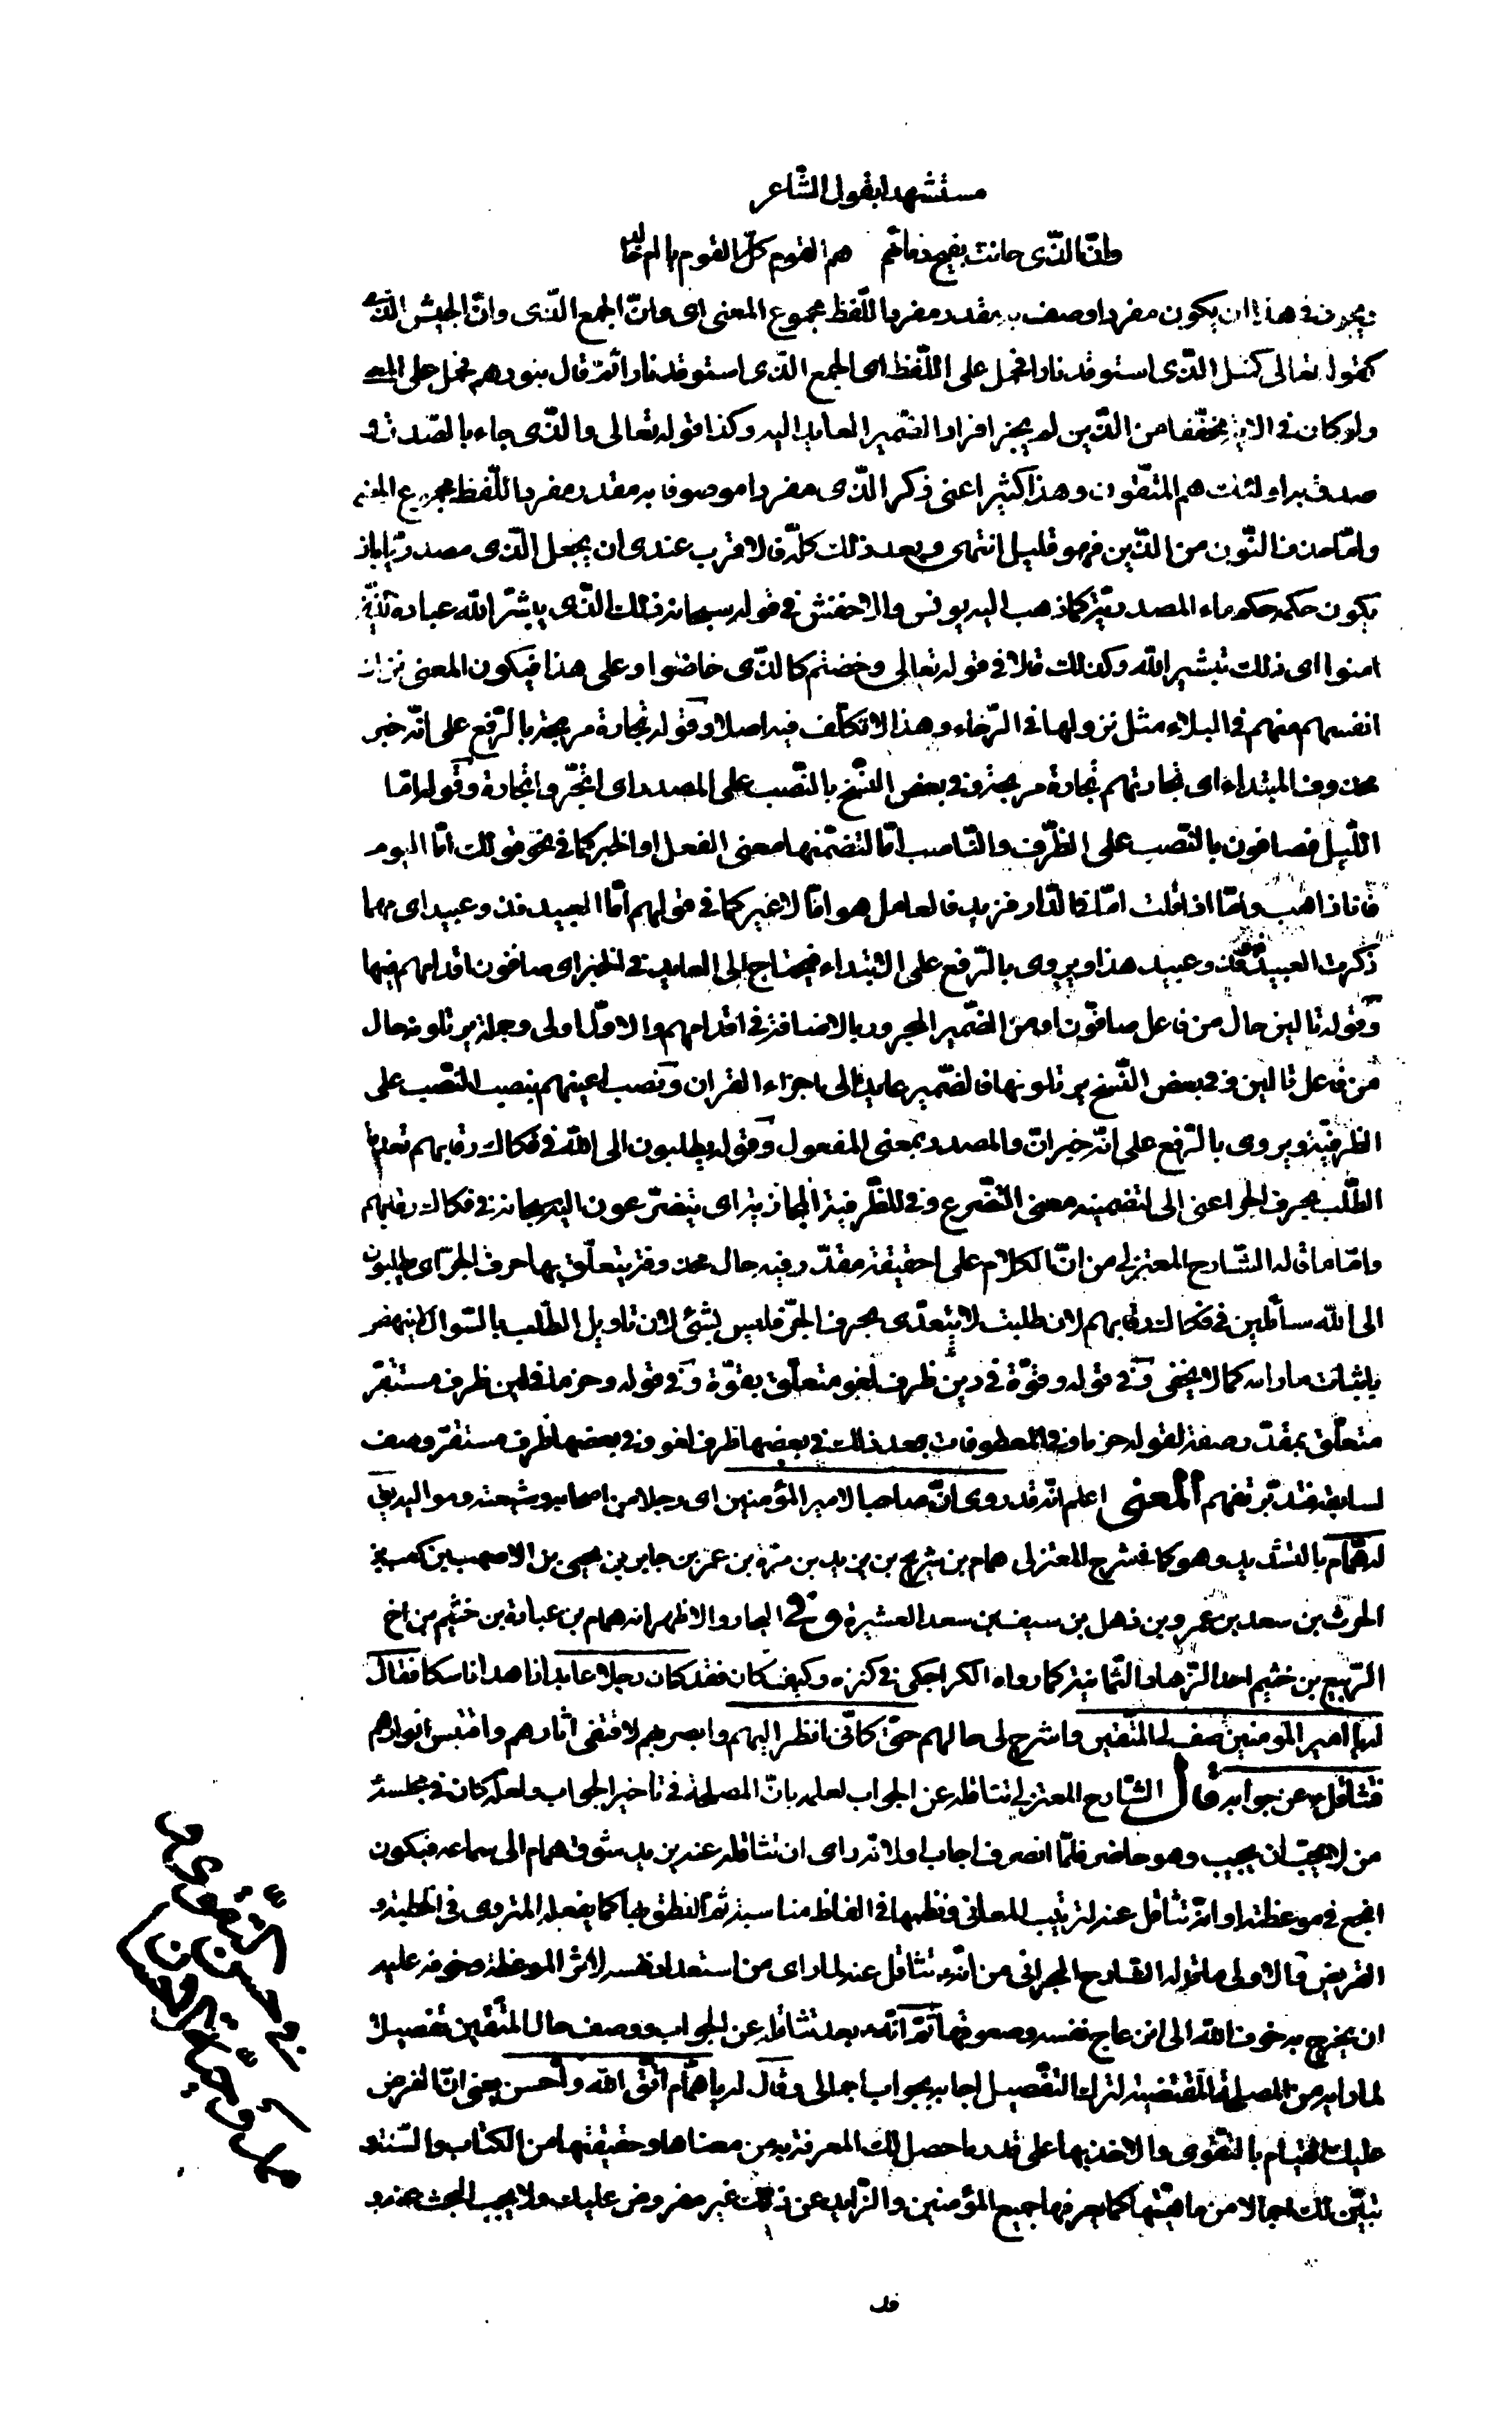 مستشهدا بقول الشّاعر
وانّ الّذى حانت بفلج دماؤهم هم القوم كلّ القوم يا امّ خالد
يجوز فى هذا ان يكون مفردا وصف به مقدر مفرد اللّفظ مجموع المعنى اى وانّ الجمع الّذى وانّ الجيش الّذى
كقوله تعالى كمثل الّذى استوقد نارا فحمل على اللّفظ اى الجمع الّذى استوقد نارا ثمّ قال بنورهم فحمل على المعنى
ولو كان فى الاية مخفّفا من الّذين لم يجز افراد الضّمير العايد اليه وكذا قوله تعالى والّذى جاء بالصّدق و
صدق به اولئك هم المتّقون وهذا كثير اعنى ذكر الّذى مفردا موصوفا به مقدر مفرد اللّفظ مجموع المعنى
وامّا حذف النّون من الّذين فهو قليل انتهى وبعد ذلك كلّه فالاقرب عندى ان يجعل الّذى مصدريّا بان
يكون حكمه حكم ماء المصدريّة كما ذهب اليه يونس والاخفش فى قوله سبحانه ذلك الّذى يبشّر الله عباده الّذين
امنوا اى ذلك تبشير الله وكذلك قالا فى قوله تعالى وخضتم كالّذى خاضوا وعلى هذا فيكون المعنى نزلت
انفسهم منهم فى البلاء مثل نزولها فى الرّخاء وهذا لا تكلّف فيه اصلا وقوله تجارة مربحة بالرّفع على انّه خبر
محذوف المبتداء اى تجارتهم تجارة مربحة وفى بعض النّسخ بالنّصب على المصدر اى اتّجروا تجارة وقوله امّا
اللّيل فصافون بالنّصب على الظّرف والنّاصب امّا لتضمّنها معنى الفعل او الخبر كما فى نحو قولك امّا اليوم
فانا ذاهب وامّا اذا قلت امّا فى الدّار فزيد فالعامل هو امّا لا غير كما فى قولهم امّا العبيد فذو عبيد اى مهما
ذكرت العبيد فذو عبيد هذا ويروى بالرّفع على الابتداء فيحتاج الى العايد فى الخبر اى صافون اقدامهم فيها
وقوله تالين حال من فاعل صافّون او من الضّمير المجرور بالاضافة فى اقدامهم والاوّل اولى وجملة يرتلونه حال
من فاعل تالين وفى بعض النّسخ يرتلونها فالضّمير عايد الى اجزاء القران ونصب اعينهم بنصب النّصب على
الظرفيّة ويروى بالرّفع على انّه خبر انّ والمصدر بمعنى المفعول وقوله يطلبون الى الله فى فكاك رقابهم تعدية
الطّلب بحرف الجر اعنى الى لتضمينه معنى التّضرع وفى للظّرفية المجازية اى يتضرّعون اليه سبحانه فى فكاك رقابهم
وامّا ما قاله الشّارح المعتزلى من انّ الكلام على حقيقة مقدّر فيه حال محذوفة يتعلّق بها حرف الجرّ اى يطلبون
الى الله سائلين فى فكاك رقابهم لان طلبت لا يتعدّى بحرف الجرّ فليس بشئ لان تاويل الطّلب بالسّوال لا ينهض
باثبات مرامه كما لا يخفى وفى قوله وقوّة فى دين ظرف لغو متعلّق بقوّة وفى قوله وحزما فى لين ظرف مستقرّ
متعلّق بمقدّر صفة لقوله حزما وفى المعطوفات بعد ذلك فى بعضها ظرف لغو وفى بعضها ظرف مستقرّ وصف
لسابقه فتدبّر تفهم المعنى اعلم انّه قد روى انّ صاحبا لامير المؤمنين اى رجلا من اصحابه وشيعته ومواليه يقال
له همّام بالتشديد وهو كما فى شرح المعتزلى همام بن شريح بن يزيد بن مرّة بن عمر بن جابر بن يحيى بن الاصهب بن كعب بن
الحرث بن سعد بن عمرو بن ذهل بن سيف بن سعد العشيرة وفى البحار والاظهر انه همام بن عبادة بن خثيم بن اخ
الرّبيع بن خثيم احد الزّهاد الثّمانية كما رواه الكراجكى فى كنزه وكيف كان فقد كان رجلا عابدا زاهدا ناسكا فقال
له يا امير المؤمنين صف لى المتّقين واشرح لى حالهم حتّى كانّى انظر اليهم وابصرهم لاقتفى اثارهم واقتبس انوارهم
فتثاقل عن جوابه قال الشّارح المعتزلى تثاقله عن الجواب لعلمه بانّ المصلحة فى تاخير الجواب ولعلّه كان فى مجلسه
من لا يحبّ ان يجيب وهو حاضر فلمّا انصرف اجاب او لانّه راى ان تثاقله عنه يزيد شوق همام الى سماعه فيكون
انجع فى موعظته او انّه تثاقل عنه لترتيب المعانى ونظمها فى الفاظ مناسبة ثمّ النطق بها كما يفعله المتروى فى الخطبة و
القريض قال اولى ما قاله الشارح البحرانى من انّه تثاقل عنه لما راى من استعداد نفسه لاثر الموعظة وخوفه عليه
ان يخرج به خوف الله الى انزعاج نفسه وصعوقها ثمّ انّه بعد تثاقله عن الجواب ووصف حال المتّقين تفصيلا
لما رايه من المصلحة المقتضية لترك التّفصيل اجابه بجواب اجمالى وقال له يا همّام اتّق الله واحسن يعنى انّ الفرض
عليك القيام بالتّقوى والاخذ بها على قدر ما حصل لك المعرفة به من معناها وحقيقتها من الكتاب والسّنة و
تبيّن لك اجمالا من ماهيّتها كما يعرفها جميع المؤمنين والزّايد عن ذلك غير مفروض عليك ولا يجب البحث عنه و